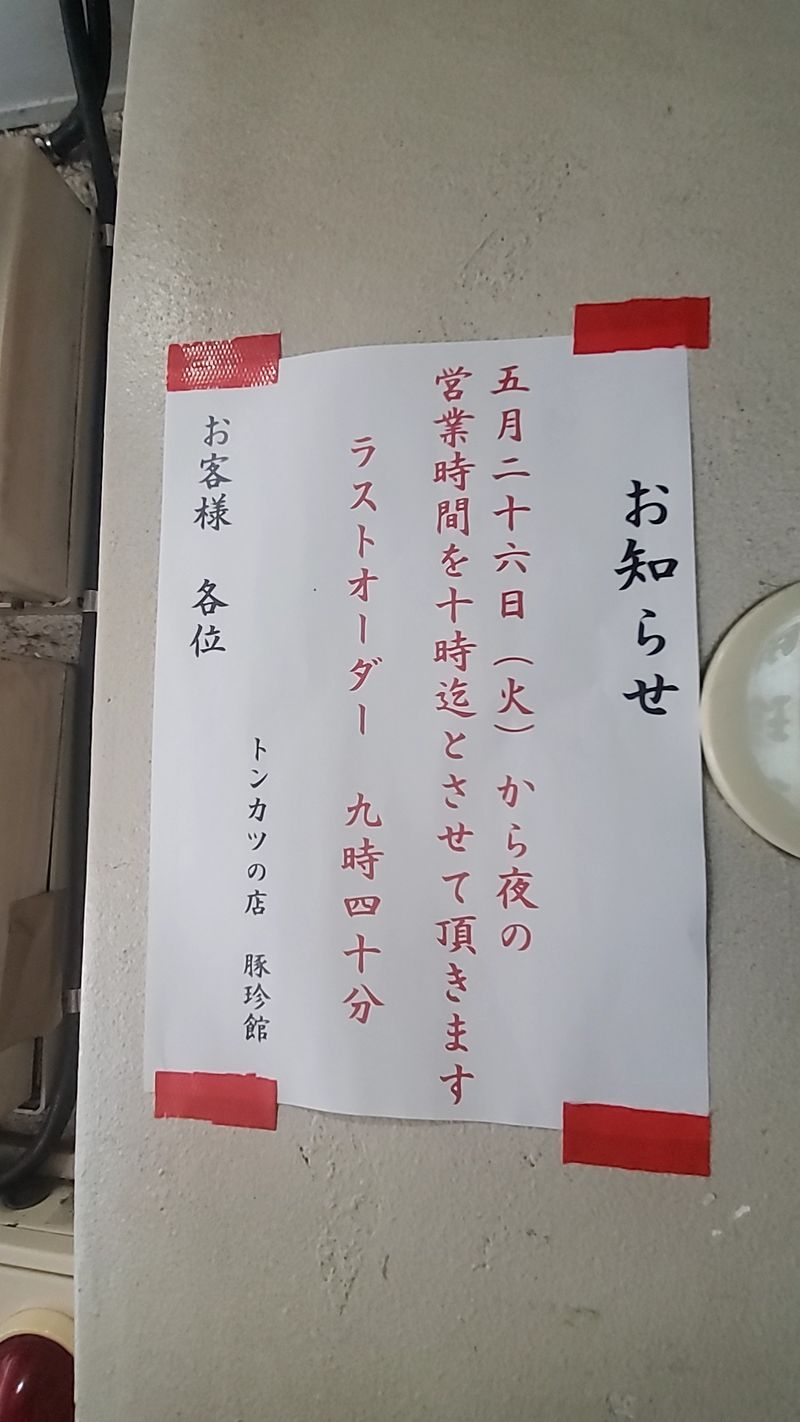 お知らせ
五月二十六日（火）から夜の
営業時間を十時迄とさせて頂きます
ラストオーダー　九時四十分
トンカツの店　豚珍館
お客様　各位